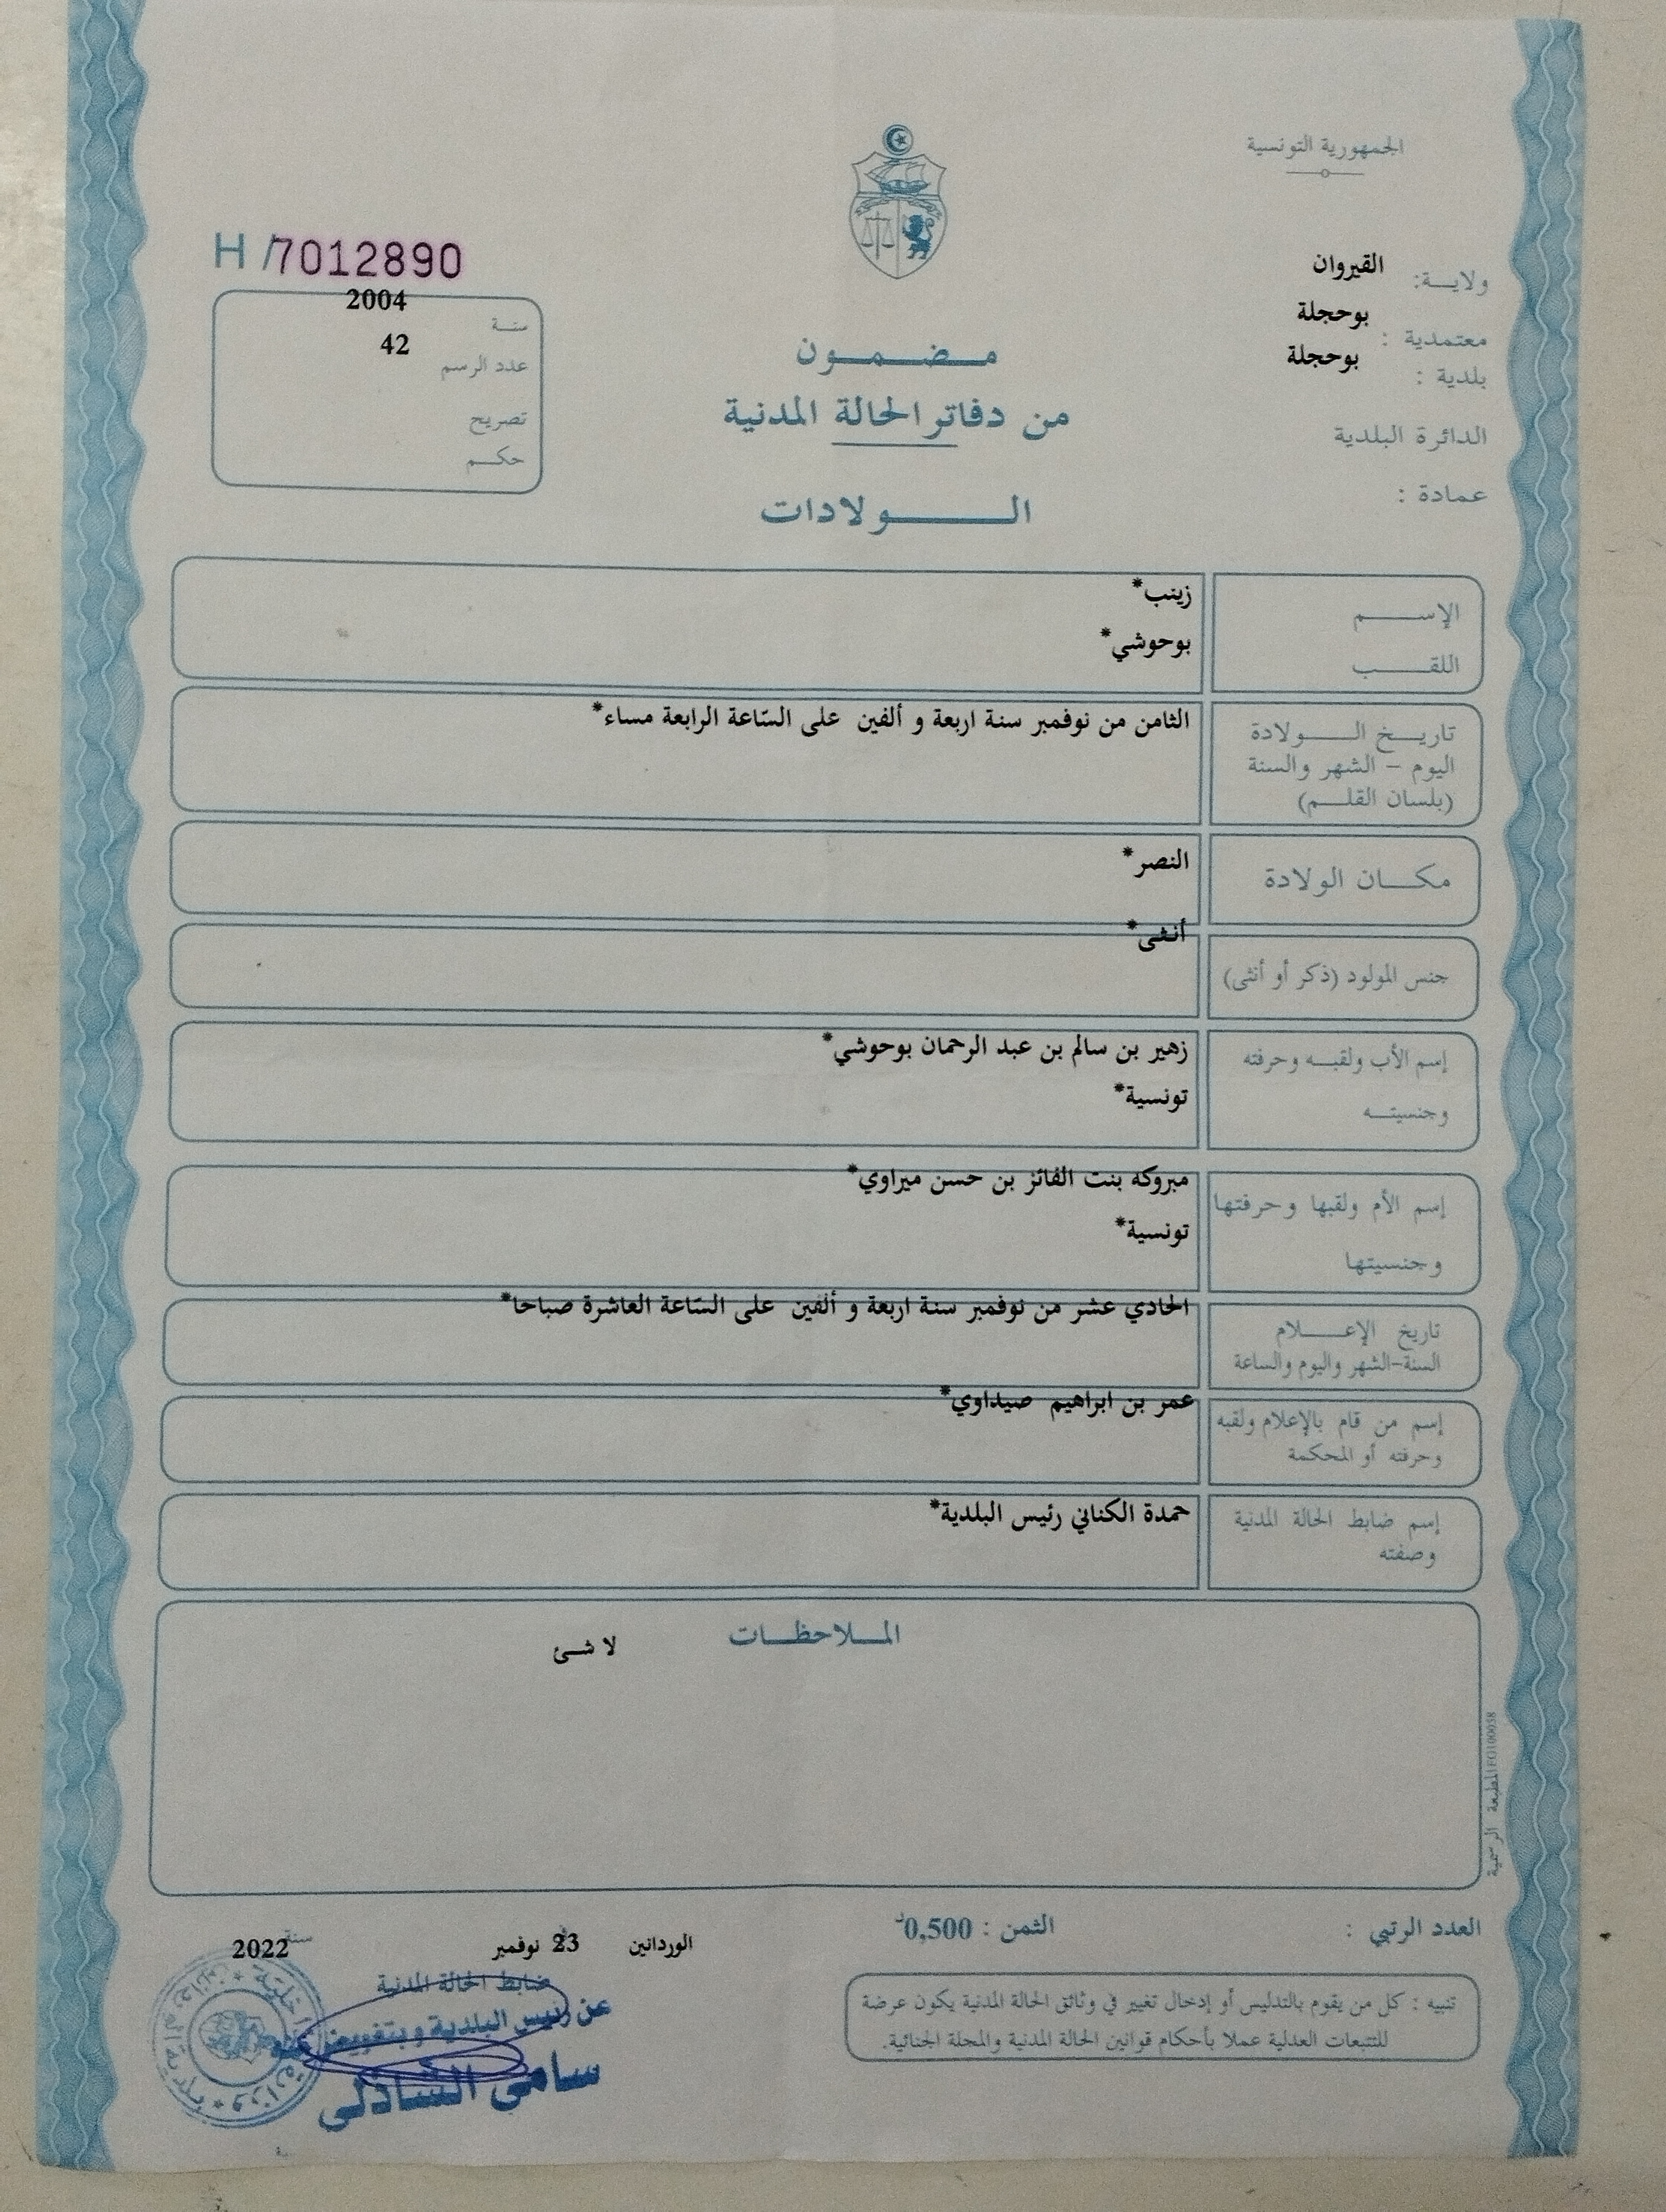 الجمهورية التونسية
ولاية: القيروان
معتمدية : بوحجلة
بلدية : بوحجلة
الدائرة البلدية
عمادة :
مضمون
من دفاتر الحالة المدنية
الولادات
H /7012890
سنة 2004
عدد الرسم 42
تصريح
حكم
الإسم زينب*
اللقب بوحوشي*
تاريخ الولادة الثامن من نوفمبر سنة اربعة و ألفين على السّاعة الرابعة مساء*
اليوم - الشهر والسنة
(بلسان القلم)
مكان الولادة النصر*
جنس المولود (ذكر أو أنثى) أنثى*
إسم الأب ولقبه وحرفته زهير بن سالم بن عبد الرحمان بوحوشي*
وجنسيته تونسية*
إسم الأم ولقبها وحرفتها مبروكه بنت الفائز بن حسن ميراوي*
وجنسيتها تونسية*
تاريخ الإعلام الحادي عشر من نوفمبر سنة اربعة و ألفين على السّاعة العاشرة صباحا*
السنة-الشهر واليوم والساعة
إسم من قام بالإعلام ولقبه عمر بن ابراهيم صيداوي*
وحرفته أو المحكمة
إسم ضابط الحالة المدنية حمدة الكناني رئيس البلدية*
وصفته
الملاحظات
لا شئ
المطبعة الرسمية
العدد الرتبي :
الثمن : 0,500د
الوردانين 23 نوفمبر سنة 2022
ضابط الحالة المدنية
عن رئيس البلدية وبتفويض منه
سامي الشاذلي
تنبيه : كل من يقوم بالتدليس أو إدخال تغيير في وثائق الحالة المدنية يكون عرضة
للتتبعات العدلية عملا بأحكام قوانين الحالة المدنية والمجلة الجنائية.